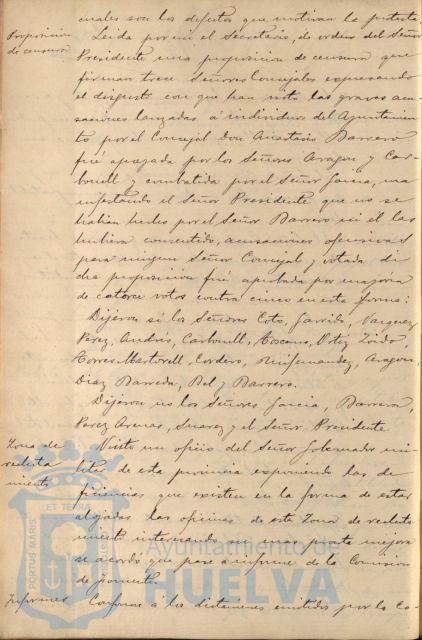 cuales son los defectos que motivan la protesta.
Proposición de censura
Leida por mi el Secretario, de orden del Señor
Presidente una proposicion de censura que
firman trece Señores Concejales expresando
el disgusto con que han visto las graves acu-
saciones lanzadas á individuos del Ayuntamien-
to por el Concejal Don Anastasio Barrero
fué apoyada por los Señores Aragon y Car-
bonell y combatida por el Señor Garcia, ma
nifestando el Señor Presidente que no se
habian hecho por el Señor Barrero ni él las
hubiera consentido, acusaciones ofensivas
para ningun Señor Concejal y votada di
cha proposición fué aprobada por mayoria
de catorce votos contra cinco en esta forma:
Dijeron sí los Señores Coto, Garrido, Vazquez
Perez, Andrés, Carbonell, Toscano, Ortiz
Torres Martorell, Cordero, Ruifernandez, Aragon,
Diaz Barreda, Bel y Barrero.
Dijeron no los Señores Garcia, Barrera,
Perez Arenas, Suarez y el Señor Presidente
Zona de
recluta
miento
Visto un oficio del Señor Gobernador mi-
litar de esta provincia exponiendo las de
ficiencias que existen en la forma de estar
alojadas las oficinas de esta Zona de recluta
miento interesando su mas pronta mejora
se acordó que pase a informe de la Comision
de Fomento.
Informes
Conforme a los dictamenes emitidos por la Co-
PORTUS MARIS ET TERRAE
Ayuntamiento de
HUELVA